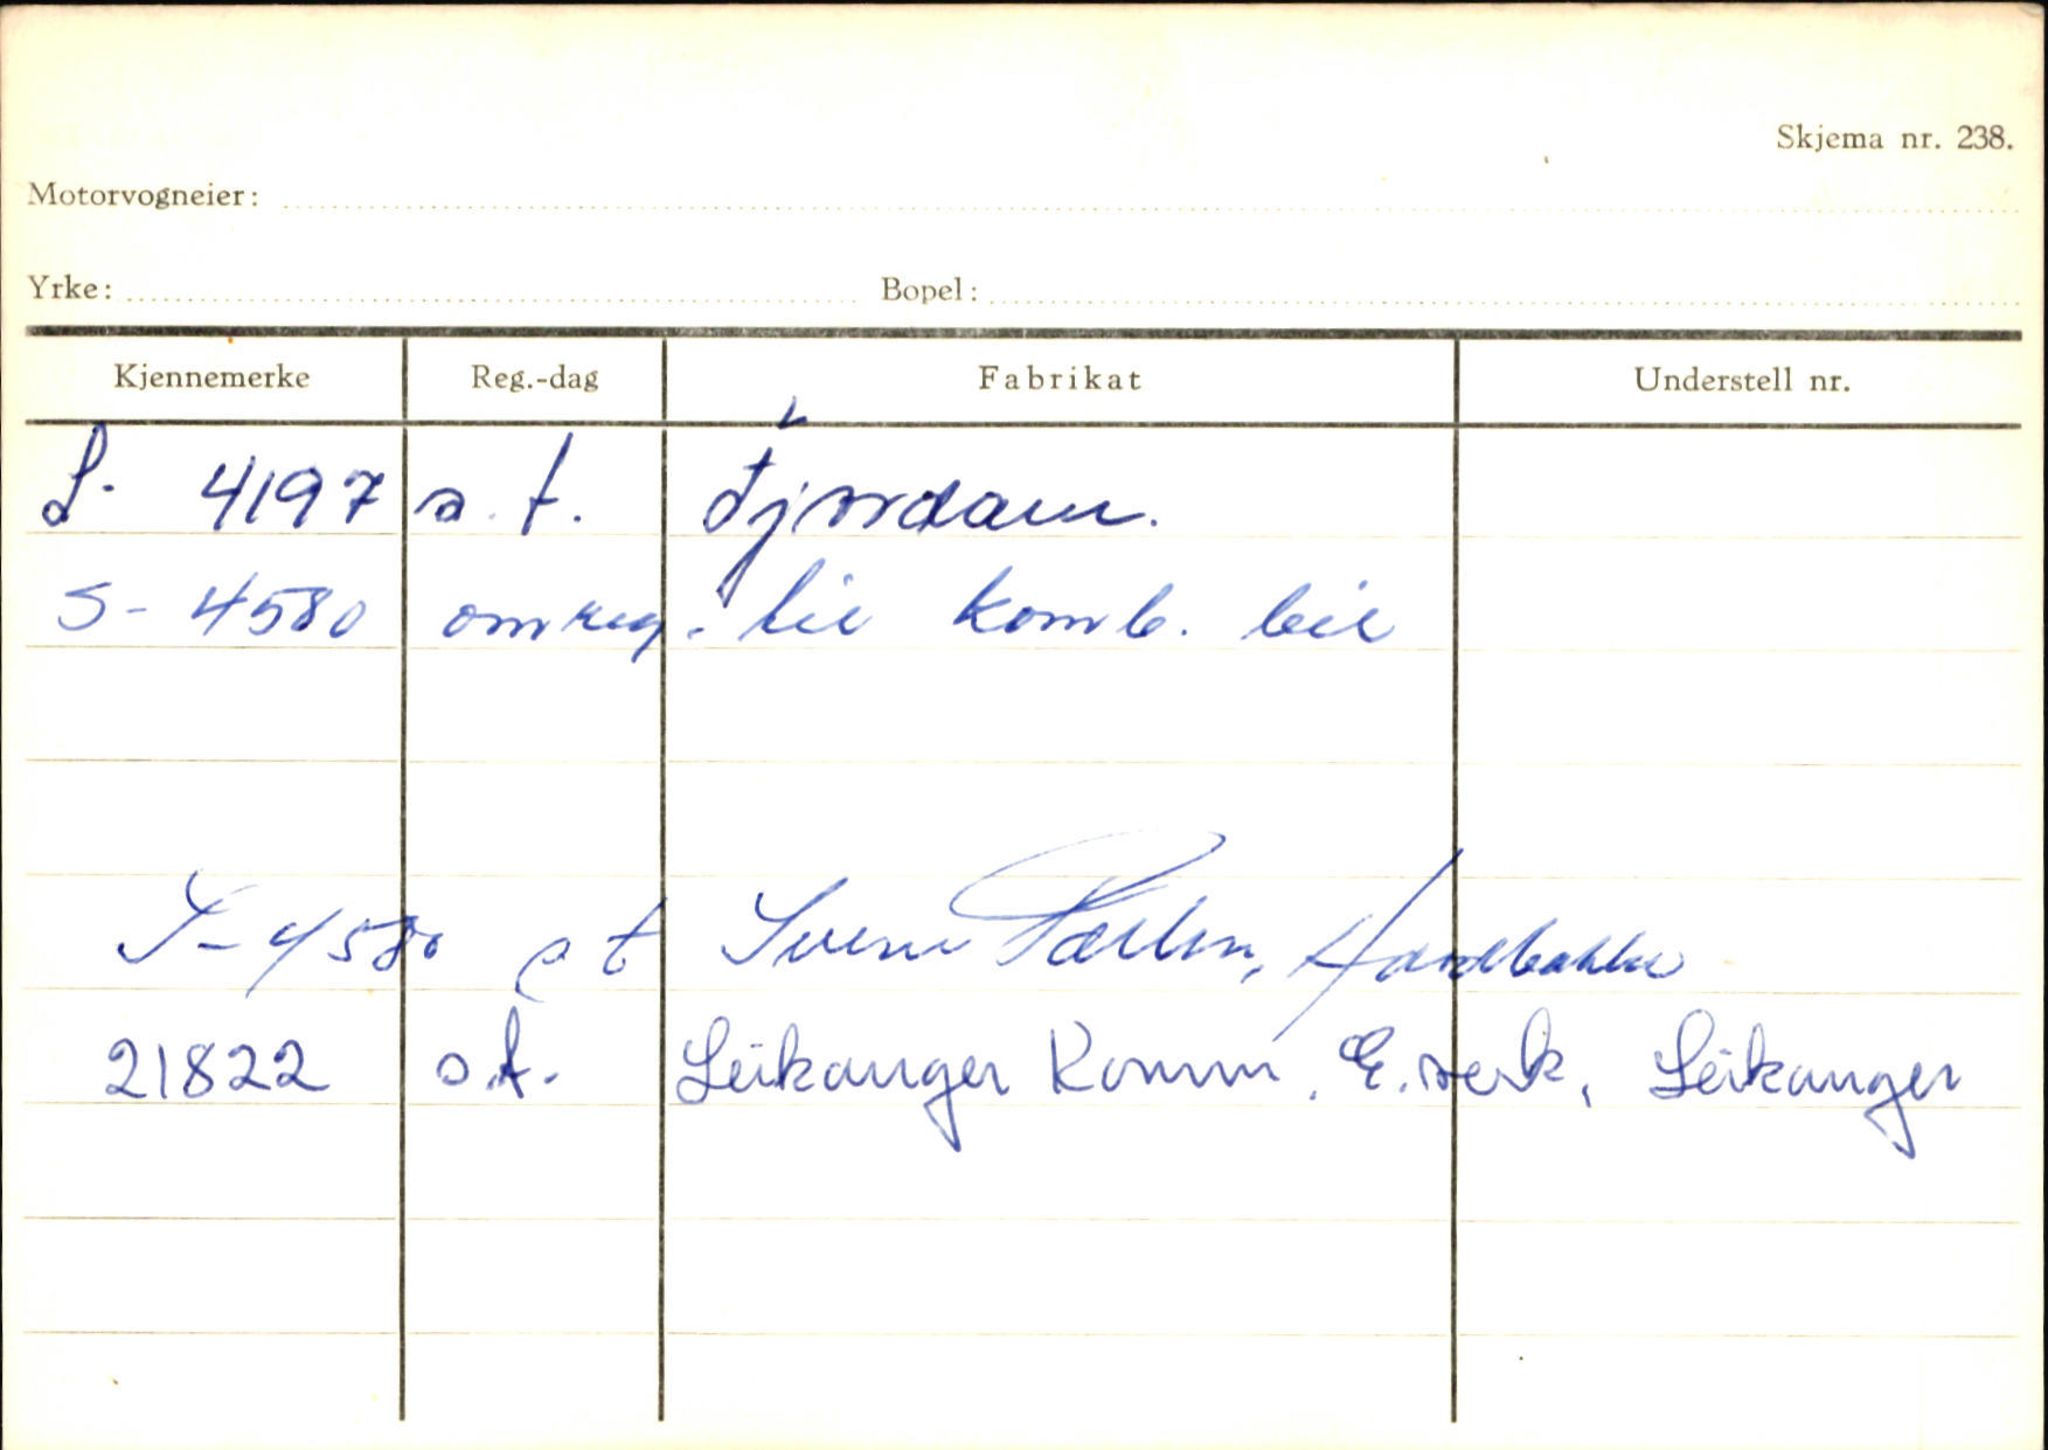 Skjema nr. 238.
Motorvogneier:
Yrke: Bopel:
Kjennemerke Reg.-dag Fabrikat Understell nr.
S- 4197 o.t.
S- 4580 omreg. til komb. bil
S-4580 o t Svein Hardbakke
21822 o.t. Leikanger Komm. E.verk, Leikanger